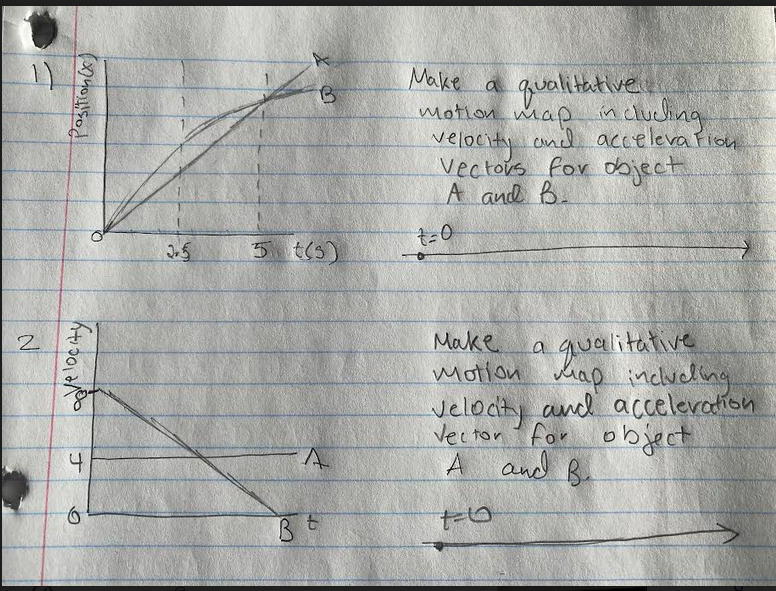 1)
Position(x)
A
B
0
2.5
5
t(s)
Make a qualitative
motion map including
velocity and acceleration
vectors for object
A and B.
t=0
2
Velocity
8
4
0
A
B
t
Make a qualitative
motion map including
velocity and acceleration
vector for object
A and B.
t=0